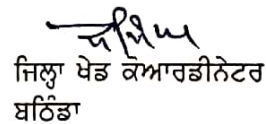 ਜਿਲ੍ਹਾ ਖੇਡ ਕੋਆਰਡੀਨੇਟਰ
ਬਠਿੰਡਾ